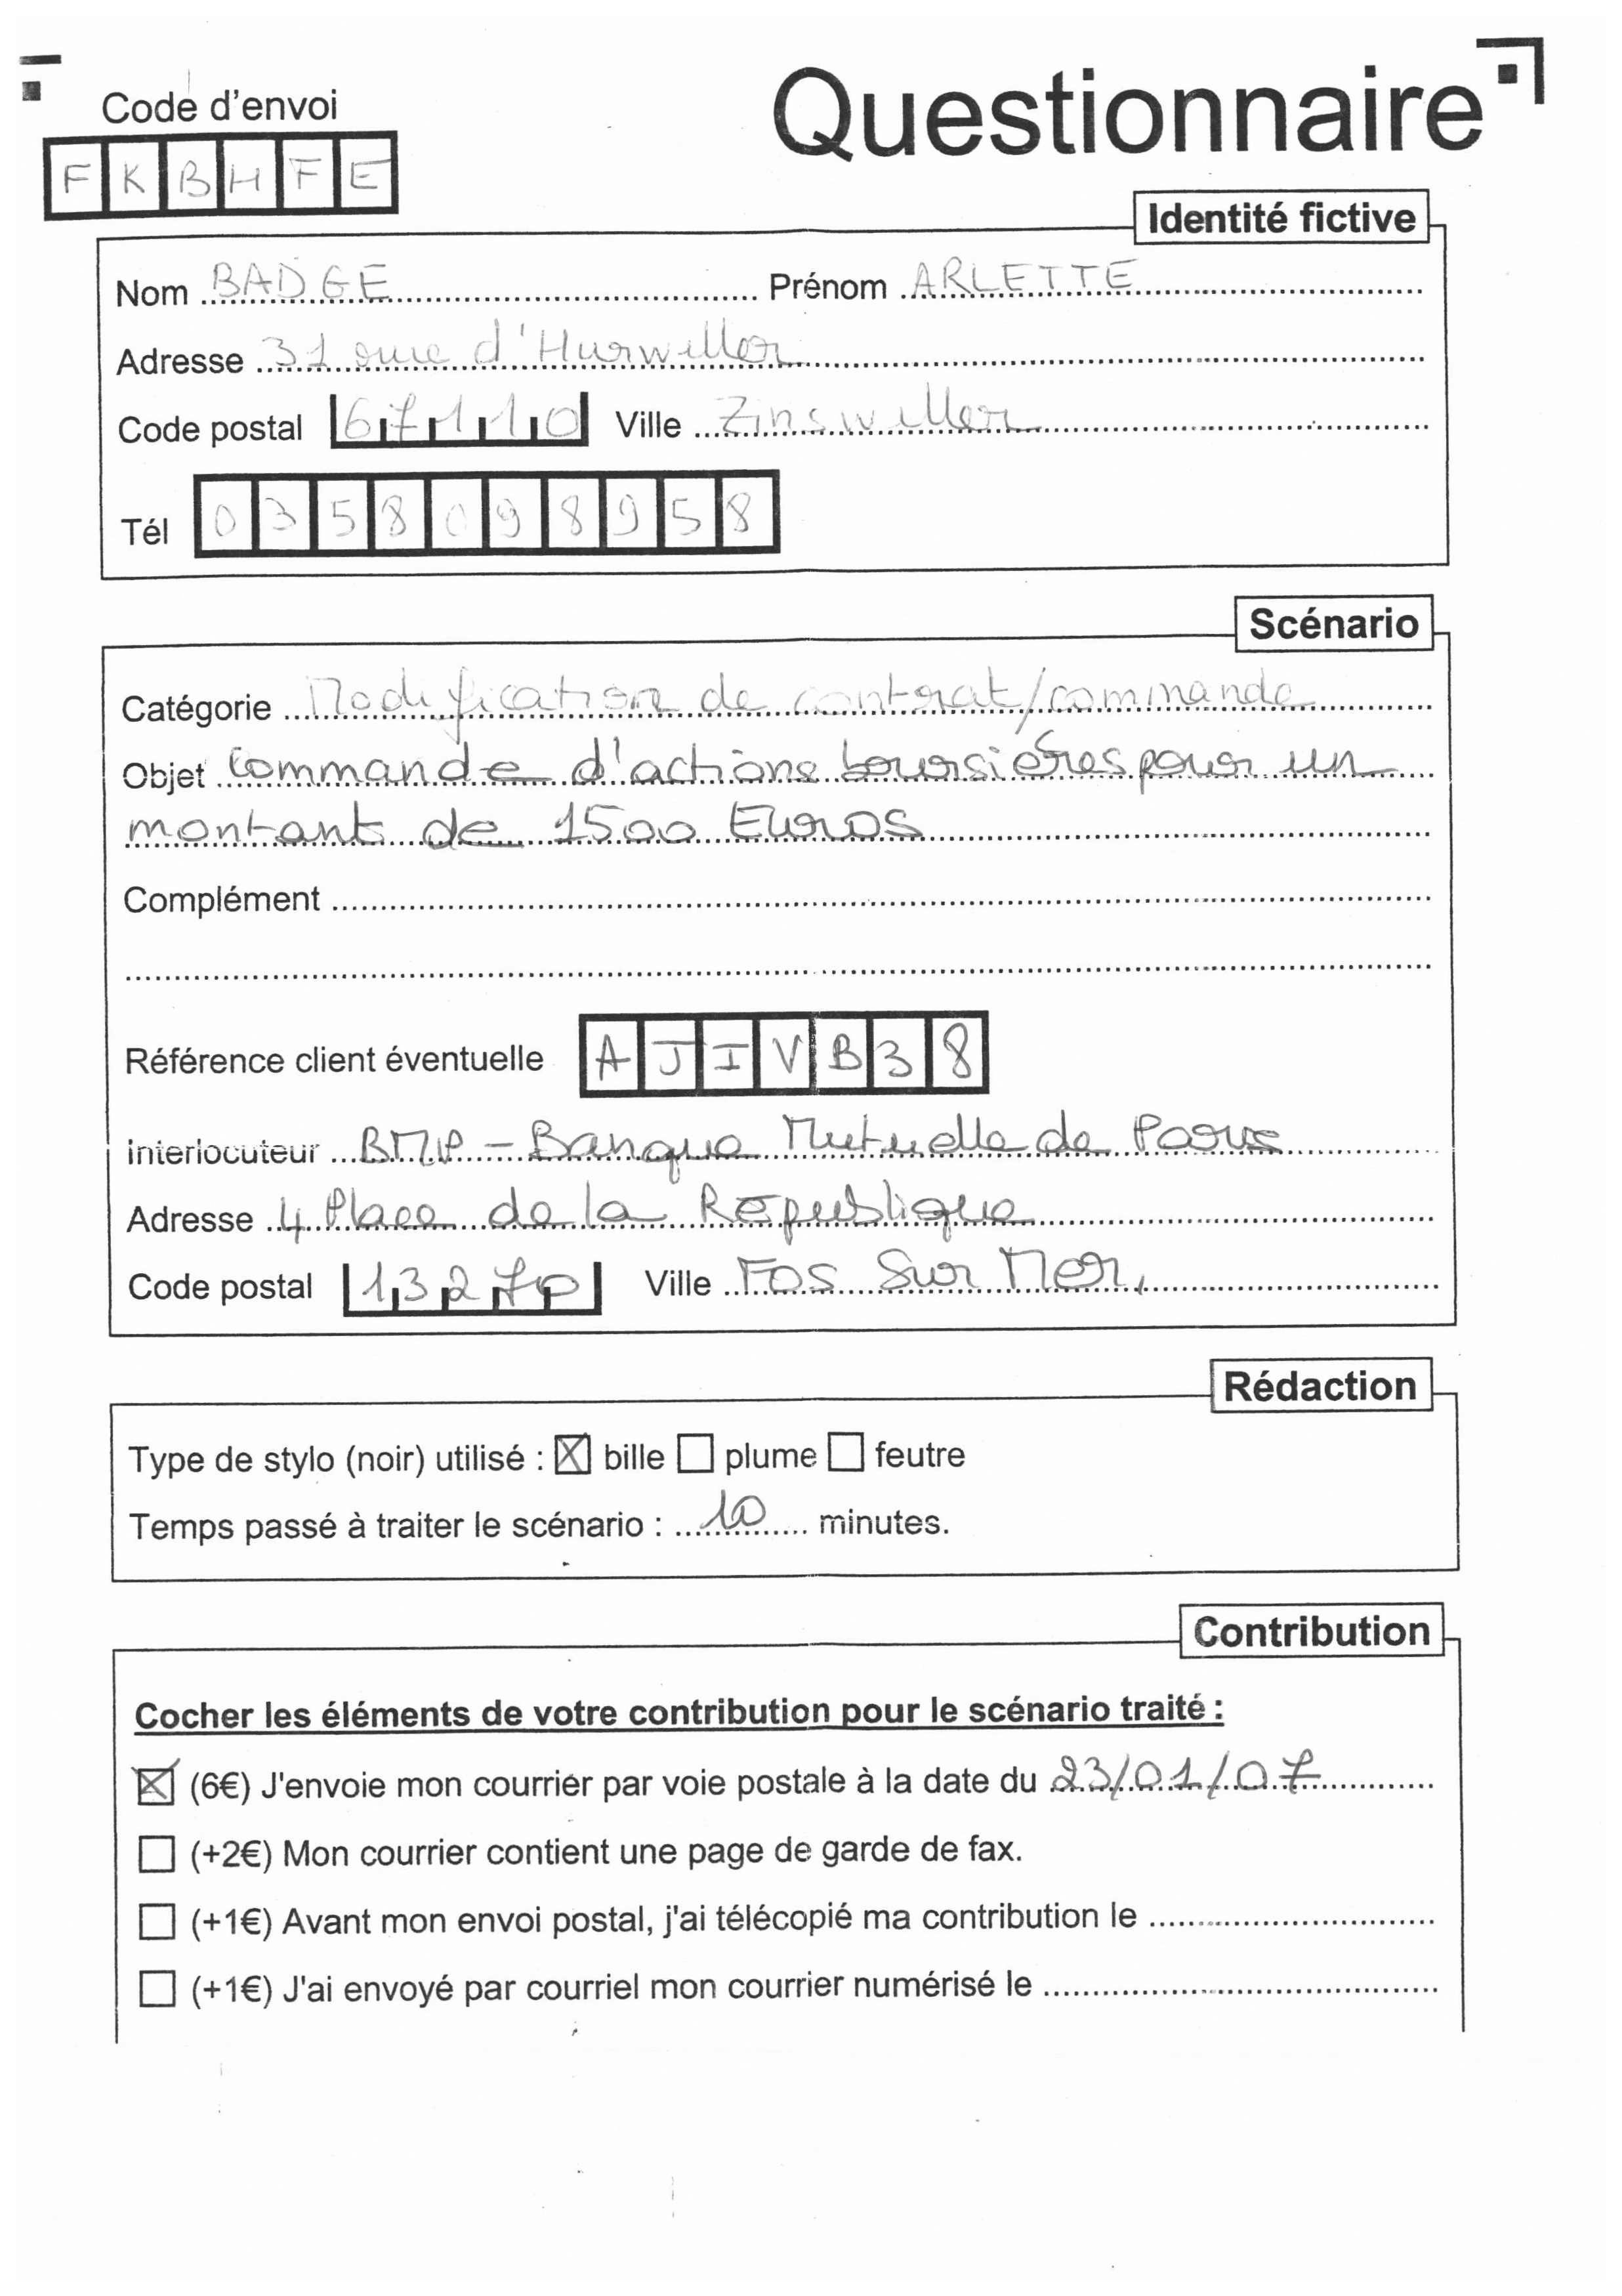 Questionnaire
Code d'envoi
FKBHFE
Identité fictive
Nom BADGE Prénom ARLETTE
Adresse 31 rue d'Hurwiller
Code postal 67110 Ville Zinswiller
Tél 0358098958
Scénario
Catégorie Modification de contrat/commande
Objet Commande d'actions boursières pour un
montant de 1500 Euros
Complément
Référence client éventuelle AJIVB38
Interlocuteur BMP - Banque Mutuelle de Paris
Adresse 4 Place de la République
Code postal 13270 Ville Fos Sur Mer,
Rédaction
Type de stylo (noir) utilisé : ☒ bille ☐ plume ☐ feutre
Temps passé à traiter le scénario : 10 minutes.
Contribution
Cocher les éléments de votre contribution pour le scénario traité :
☒ (6€) J'envoie mon courrier par voie postale à la date du 23/01/07
☐ (+2€) Mon courrier contient une page de garde de fax.
☐ (+1€) Avant mon envoi postal, j'ai télécopié ma contribution le
☐ (+1€) J'ai envoyé par courriel mon courrier numérisé le